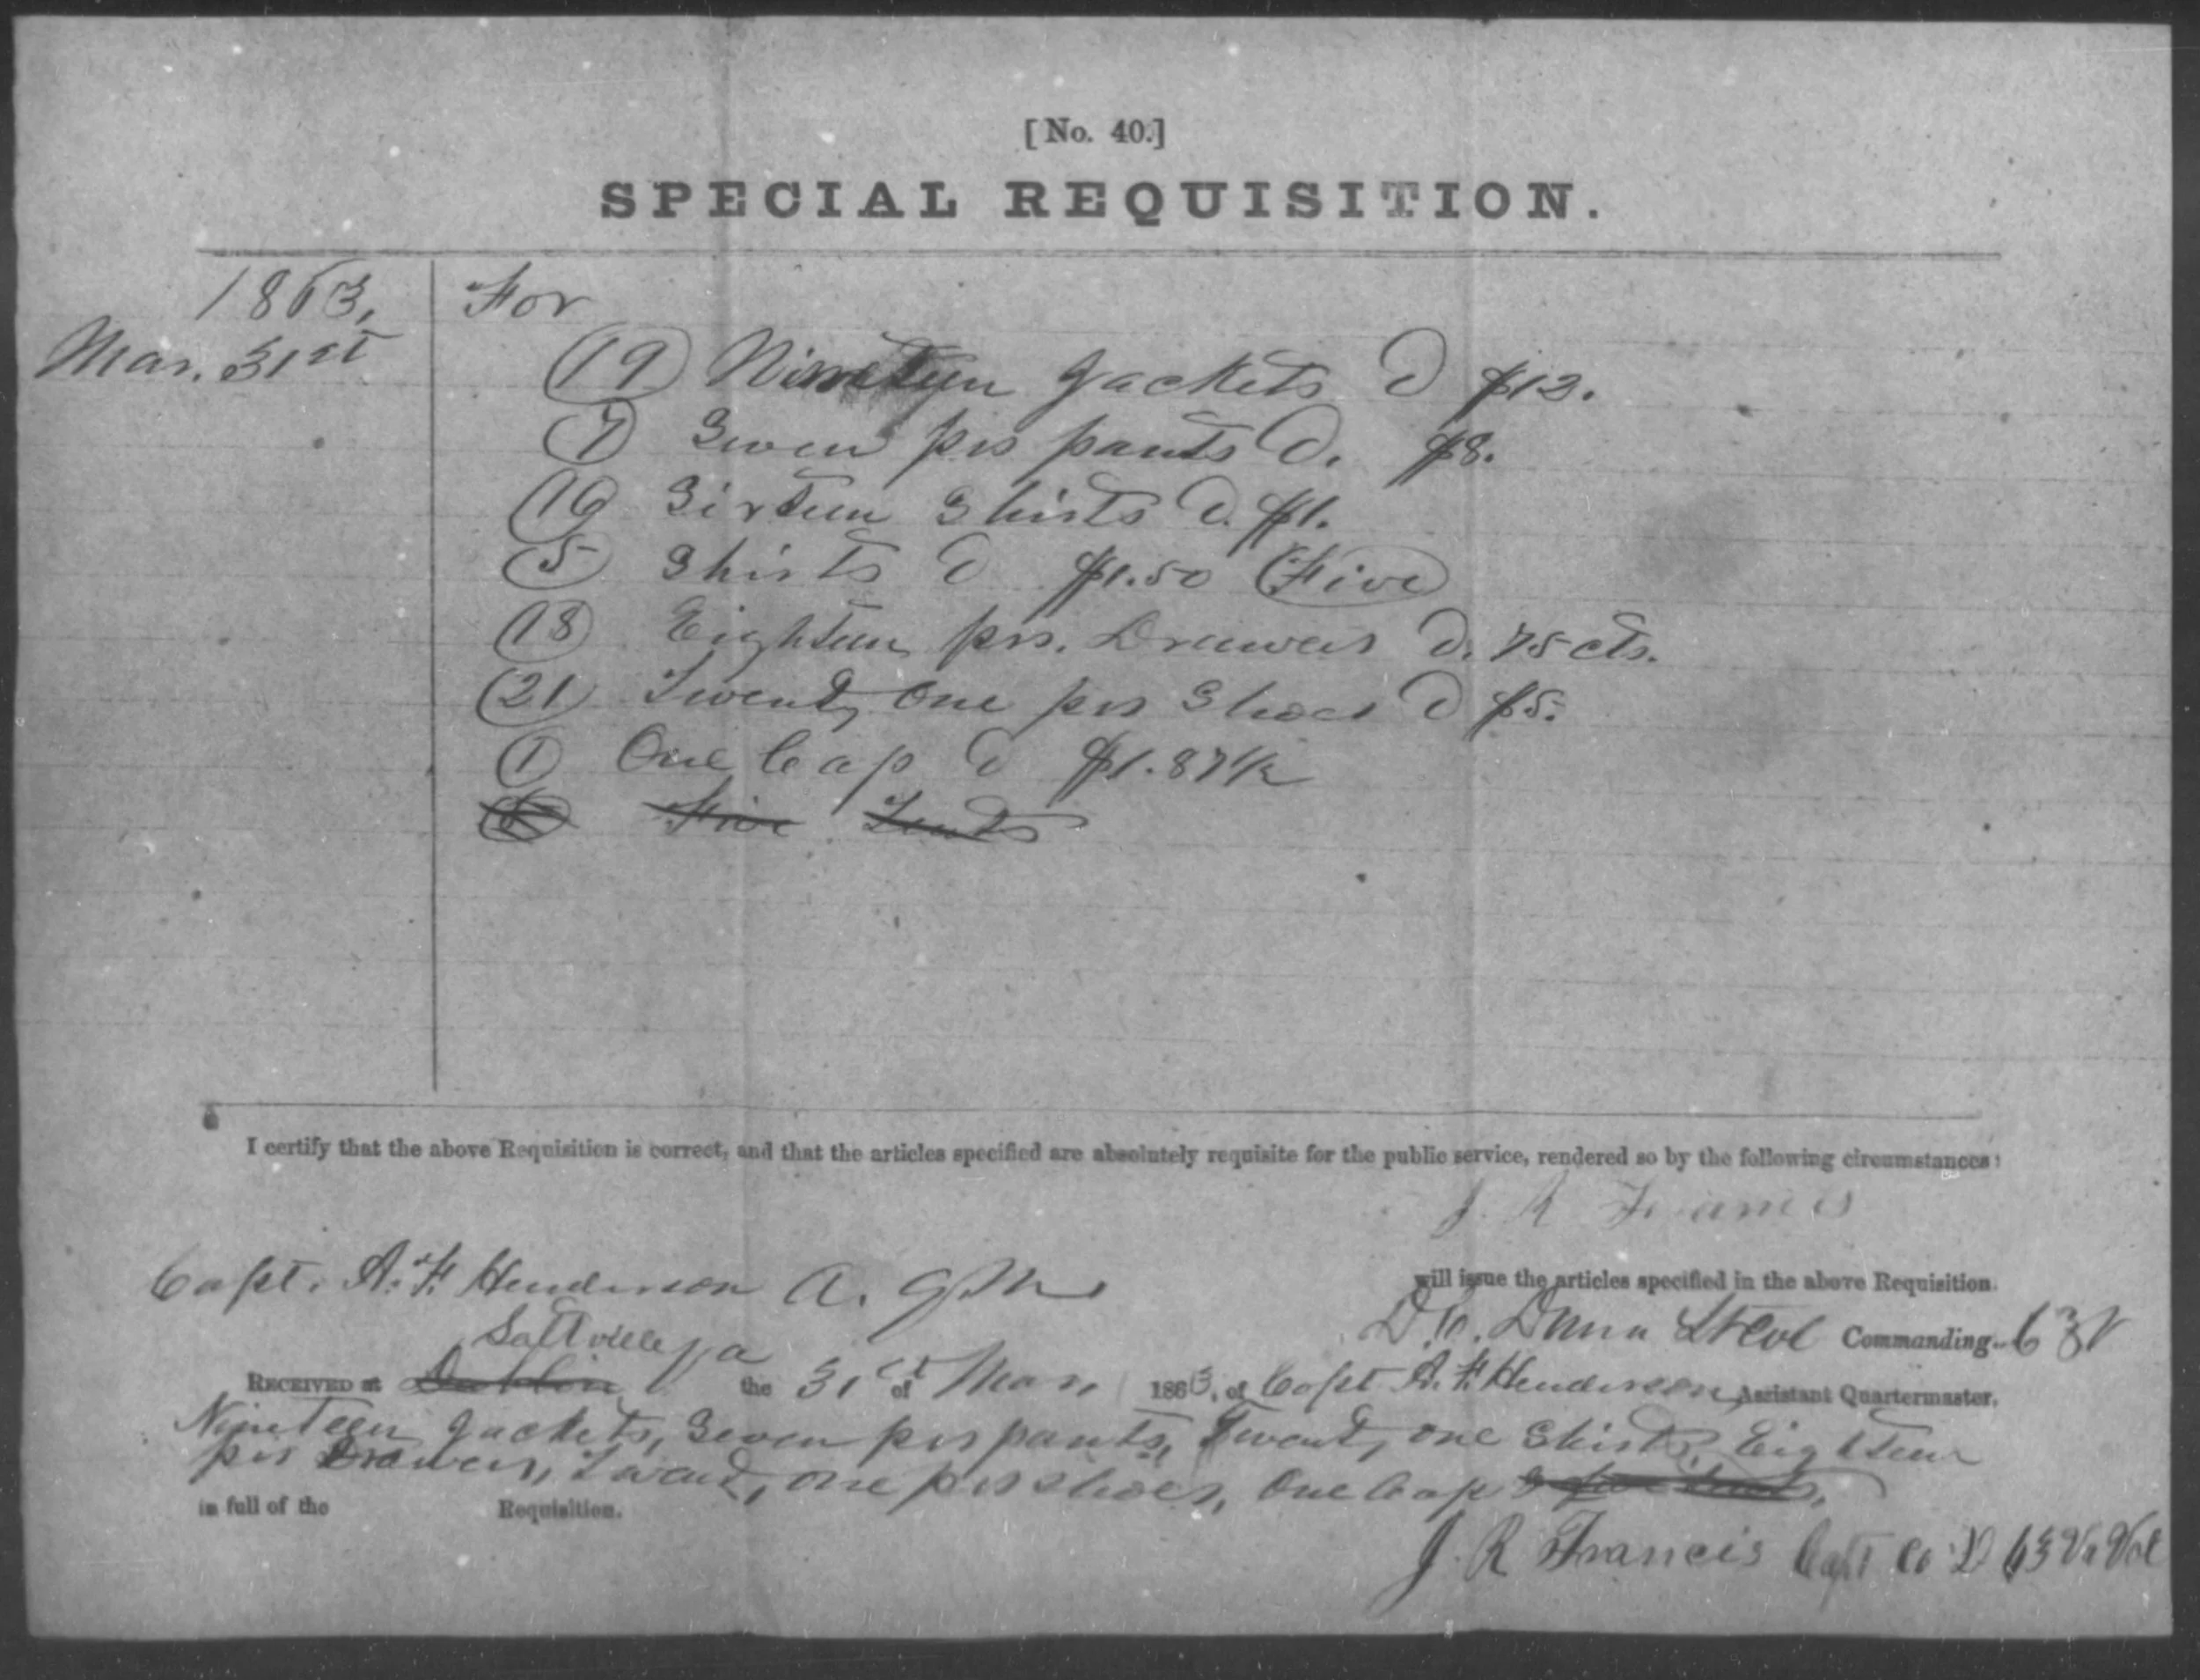 [No. 40.]
SPECIAL REQUISITION.
1863, For
Mar. 31st
(19) Nineteen Jackets @ $12.
(7) Seven prs pants @. $8.
(16) Sixteen Shirts @. $1.
(5) Shirts @ $1.50 (Five)
(18) Eighteen prs. Drawers @. 75 cts.
(21) Twenty One prs Shoes @ $5.
(1) One Cap @ $1.87½
Five Tents
I certify that the above Requisition is correct, and that the articles specified are absolutely requisite for the public service, rendered so by the following circumstances:
J. R Francis
Capt. A. F. Henderson A. Q M
will issue the articles specified in the above Requisition.
Commanding
Saltville Va
RECEIVED at Dublin the 31st of Mar, 1863, of Capt A. F. Henderson Assistant Quartermaster,
Nineteen Jackets, Seven prs pants, Twenty one Shirts, Eighteen
prs Drawers, Twenty one prs shoes, One Cap & five tents,
in full of the Requisition.
J. R Francis Capt Co D 63 Va Vol